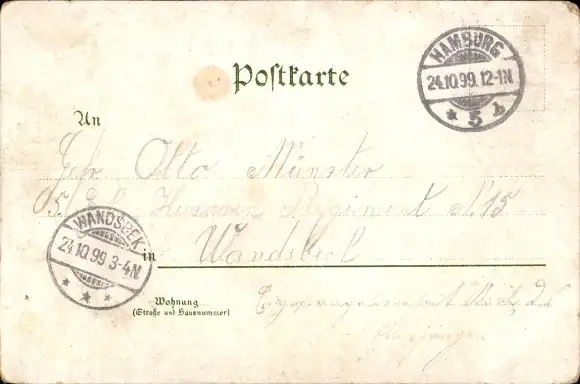 HAMBURG
24.10.99. 12-1N
* 5 b.
Postkarte
An
Gefr Otto Münster
5. Husaren Regiment N. 15
WANDSBEK
24.10.99 3-4N.
* * *
in Wandsbeck
Wohnung
(Straße und Hausnummer)